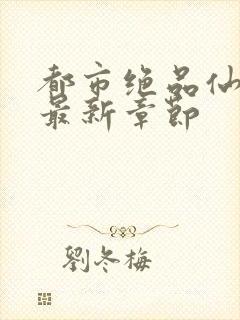 都市绝品仙
最新章節
劉冬梅